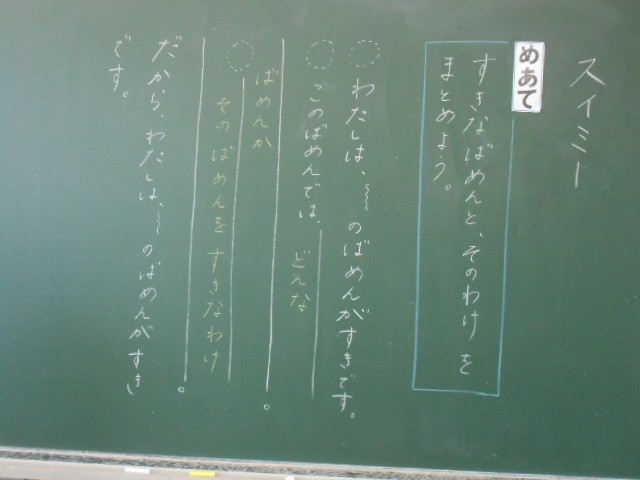 スイミー
めあて
すきなばめんと、そのわけを
まとめよう。
わたしは、〰のばめんがすきです。
このばめんでは、
どんな
ばめんか
。
そのばめんをすきなわけ
。
だから、わたしは、〰のばめんがすき
です。